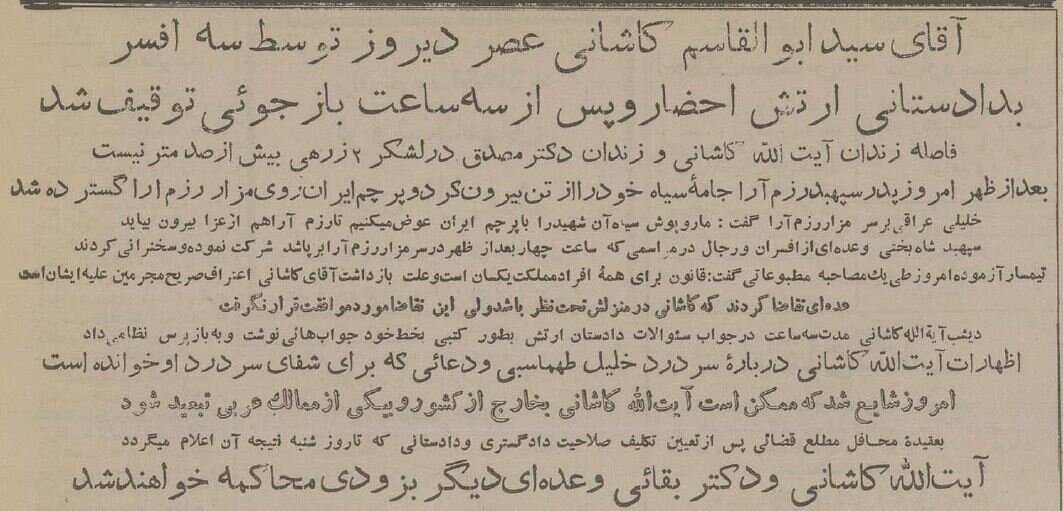 آقای سید ابوالقاسم کاشانی عصر دیروز توسط سه افسر
بدادستانی ارتش احضار و پس از سه ساعت بازجوئی توقیف شد
فاصله زندان آیت الله کاشانی و زندان دکتر مصدق در لشکر ۲ زرهی بیش از صد متر نیست
بعد از ظهر امروز پدر سپهبد رزم آرا جامهٔ سیاه خود را از تن بیرون کرد و پرچم ایران روی مزار رزم آرا گسترده شد
خلیلی عراقی بر سر مزار رزم آرا گفت : ما روپوش سیاه آن شهید را با پرچم ایران عوض میکنیم تا رزم آرا هم از عزا بیرون بیاید
سپهبد شاه بختی وعده‌ای از افسران و رجال در مراسمی که ساعت چهار بعد از ظهر در سر مزار رزم آرا بر پا شد شرکت نموده و سخنرانی کردند
تیمسار آزموده امروز طی یك مصاحبه مطبوعاتی گفت: قانون برای همهٔ افراد مملکت یکسان است و علت بازداشت آقای کاشانی اعتراف صریح مجرمین علیه ایشان است
عده‌ای تقاضا کردند که کاشانی در منزلش تحت نظر باشد ولی این تقاضا مورد موافقت قرار نگرفت
دیشب آیة الله کاشانی مدت سه ساعت در جواب سئوالات دادستان ارتش بطور کتبی بخط خود جواب هائی نوشت و به باز پرس نظامی داد
اظهارات آیت الله کاشانی دربارهٔ سر درد خلیل طهماسبی و دعائی که برای شفای سر درد او خوانده است
امروز شایع شد که ممکن است آیت الله کاشانی بخارج از کشور و بیکی از ممالك عربی تبعید شود
بعقیدهٔ محافل مطلع قضائی پس از تعیین تکلیف صلاحیت دادگستری و دادستانی که تا روز شنبه نتیجه آن اعلام میگردد
آیت الله کاشانی و دکتر بقائی وعده‌ای دیگر بزودی محاکمه خواهند شد